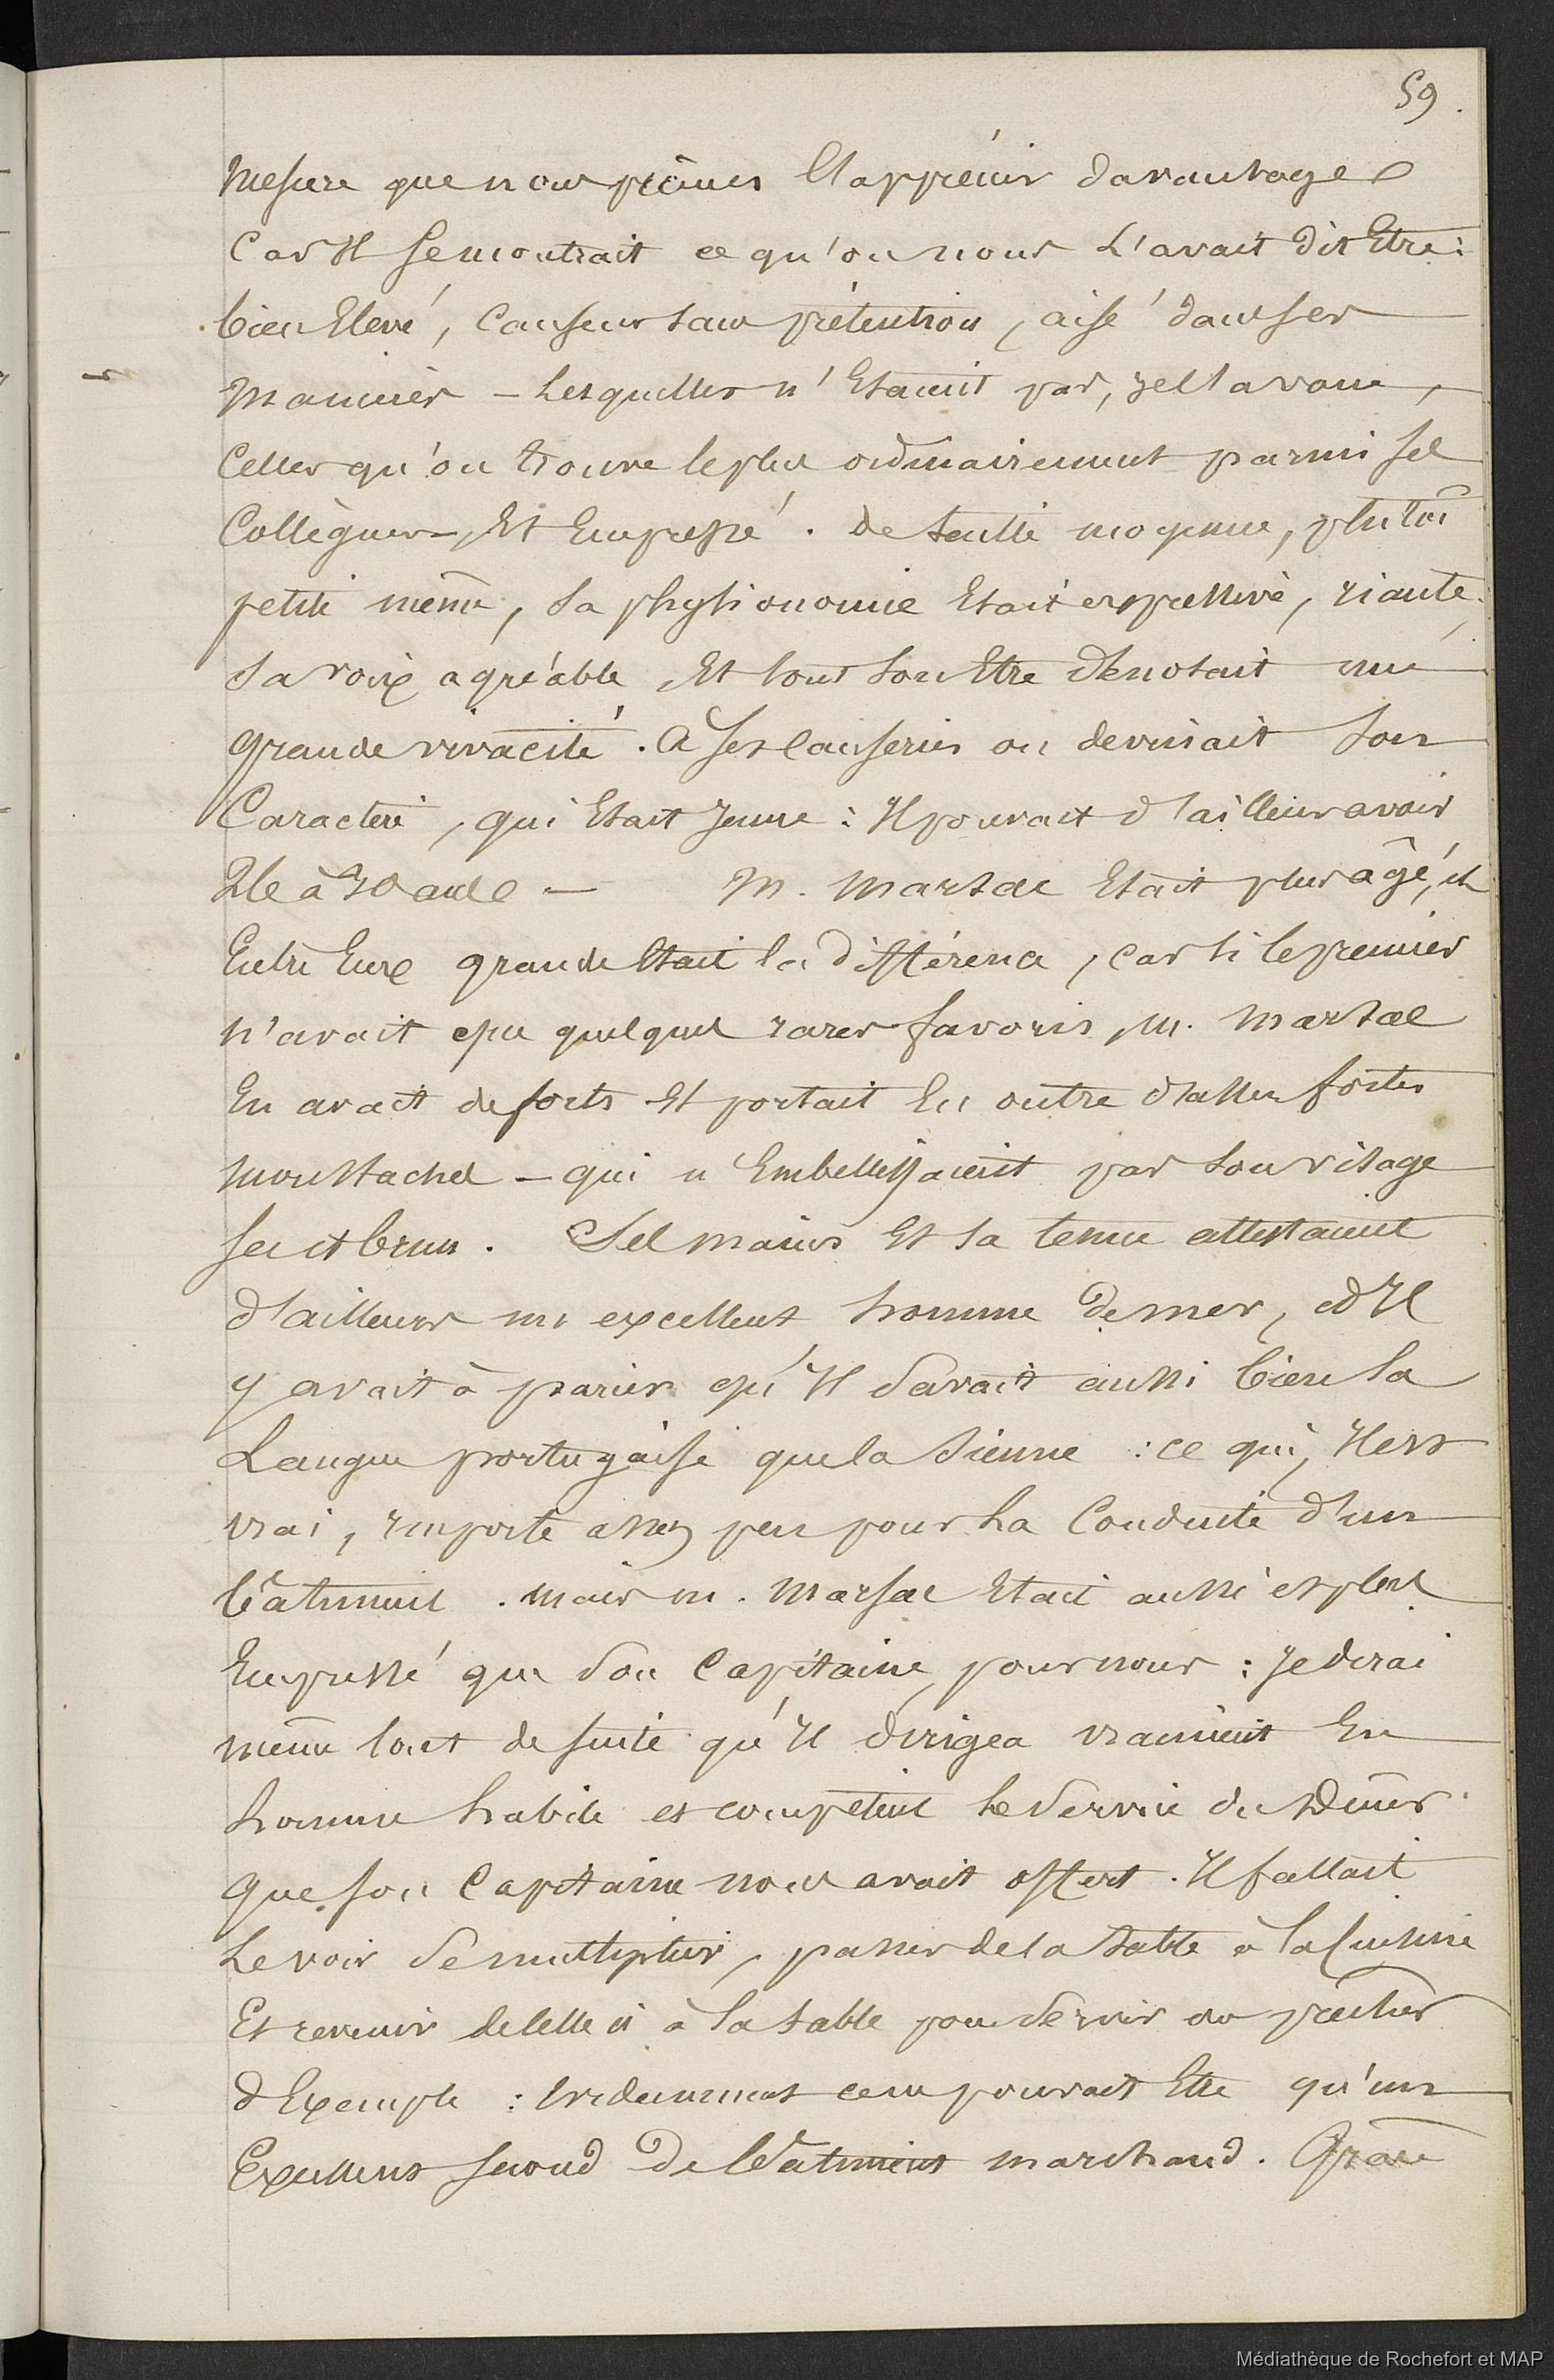 59.
mesure que nous pûmes l'apprécier davantage
car Il se montrait ce qu'on nous L'avait dit Etre:
bien Elevé, Causeur sans prétention, aisé dans ses
manières – Lesquelles n'Etaient pas, je l'avoue,
Celles qu'on trouve le plus ordinairement parmi ses
Collègues –, Et Empressé. de taille moyenne, plutôt
petite même, sa physionomie Etait expressive, riante,
sa voix agréable, Et tout son Etre dénotait une
grande vivacité. A ses Causeries on devinait son
Caractère, qui Etait Jeune: Il pouvait d'ailleurs avoir
à 30 ans – M. Marsac Etait plus âgé, et
Entre Eux grande Etait la différence, car si le premier
n'avait que quelques rares favoris, M. Marsac
En avait de forts Et portait En outre d'assez fortes
moustaches – qui n'Embellissaient pas son visage
sec et brun. Ses mains Et sa tenue attestaient
d'ailleurs un excellent homme de mer, et Il
y avait à parier qu'Il savait aussi bien la
Langue portugaise que la sienne: ce qui, Il est
vrai, Importe assez peu pour La Conduite d'un
bâtiment. mais M. Marsac Etait aussi et plus
Empressé que son Capitaine pour nous: Je dirai
même tout de suite qu'Il dirigea vraiment En
homme habile et compétent Le Service du Dîner
que son Capitaine nous avait offert. Il fallait
Le voir se multiplier, passer de la table à la Cuisine
Et revenir de Celle ci à la table pour Servir ou prêcher
d'Exemple: Evidemment ce ne pouvait Etre qu'un
Excellent second de bâtiment marchand. Grâce
Médiathèque de Rochefort et MAP